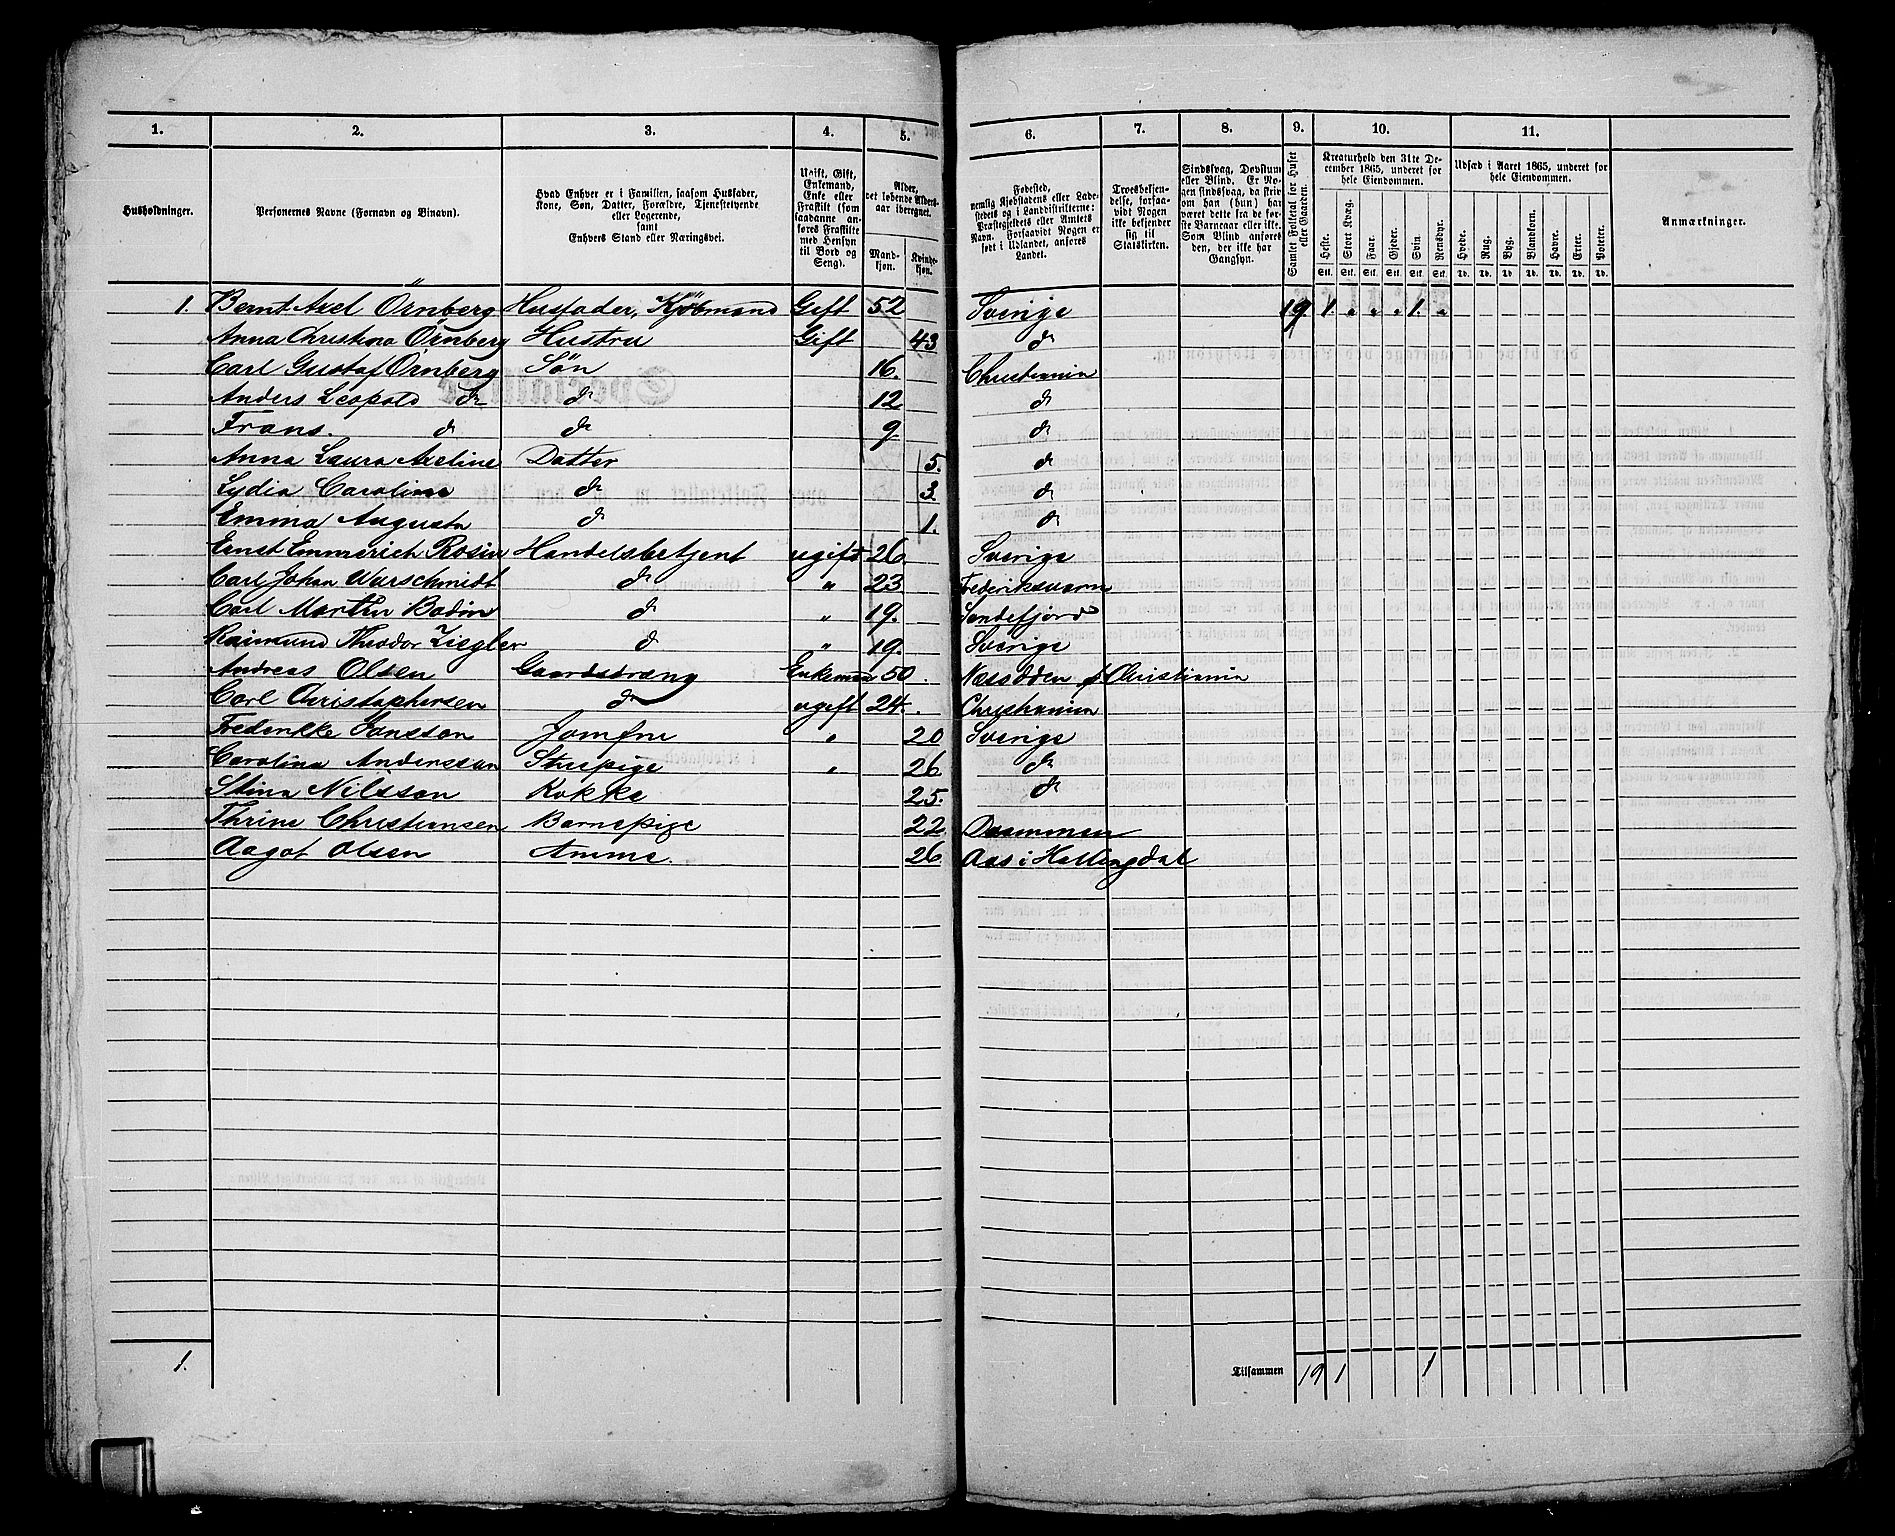 1. 2. 3. 4. 5. 6. 7. 8. 9. 10. 11.
Husholdninger.
Personernes Navne (Fornavn og Binavn).
Hvad Enhver er i Familien, saasom Husfader,
Kone, Søn, Datter, Forældre, Tjenestetyende
eller Logerende,
samt
Enhvers Stand eller Næringsvei.
Ugift, Gift,
Enkemand,
Enke eller
Fraskilt (som
saadanne an-
føres Fraskilte
med Hensyn
til Bord og
Seng).
Alder,
det løbende Alders-
aar iberegnet.
Mand-
kjøn.
Kvinde-
kjøn.
Fødested,
nemlig Kjøbstadens eller Lade-
stedets og i Landdistrikterne:
Præstegjeldets eller Amtets
Navn. Forsaavidt Nogen er
født i Udlandet, anføres
Landet.
Troesbekjen-
delse, forsaa-
vidt Nogen
ikke bekjender
sig til
Statskirken.
Sindssvag, Døvstum
eller Blind. Er No-
gen sindssvag, da skriv
om han (hun) har
været dette fra de før-
ste Barneaar eller ikke.
Som Blind anføres
den, der ikke har
Gangsyn.
Samlet Folketal for Huset
eller Gaarden.
Kreaturhold den 31te De-
cember 1865, underet for
hele Eiendommen.
Heste. Stort Kvæg. Faar. Gjeder. Svin. Rensdyr.
Stk. Stk. Stk. Stk. Stk. Stk.
Udsæd i Aaret 1865, underet for
hele Eiendommen.
Hvede. Rug. Byg. Blandkorn. Havre. Erter. Poteter.
Td. Td. Td. Td. Td. Td. Td.
Anmærkninger.
1. Bernt Axel Örnberg Husfader, Kjöbmand Gift 52 Sverige 19 1. " " " 1. "
Anna Christina Örnberg Hustru Gift 43 do
Carl Gustaf Örnberg Sön 16. Christiania
Anders Leopold do do 12 do
Frans. do do 9 do
Anna Laura Axeline Datter 5. do
Lydia Caroline do 3. do
Emma Augusta do 1. do
Ernst Emmerich Rosin Handelsbetjent ugift 26. Sverige
Carl Johan Warschmidt do " 23 Frederiksværn
Carl Martin Bodin do " 19. Sandefjord
Raimund Theodor Ziegler do " 19. Sverige
Andreas Olsen Gaardsdreng Enkeman 50. Næsodden p Christiania
Carl Christophersen do ugift 24. Christiania
Frederikke Jansson Jomfru " 20 Sverige
Carolina Andersson Stuepige " 26 do
Stina Nilsson Kokke 25. do
Thrine Christiansen Barnepige 22 Drammen
Aagot Olsen Amme. 26 Aas i Hallingdal
1. Tilsammen 19 1 1